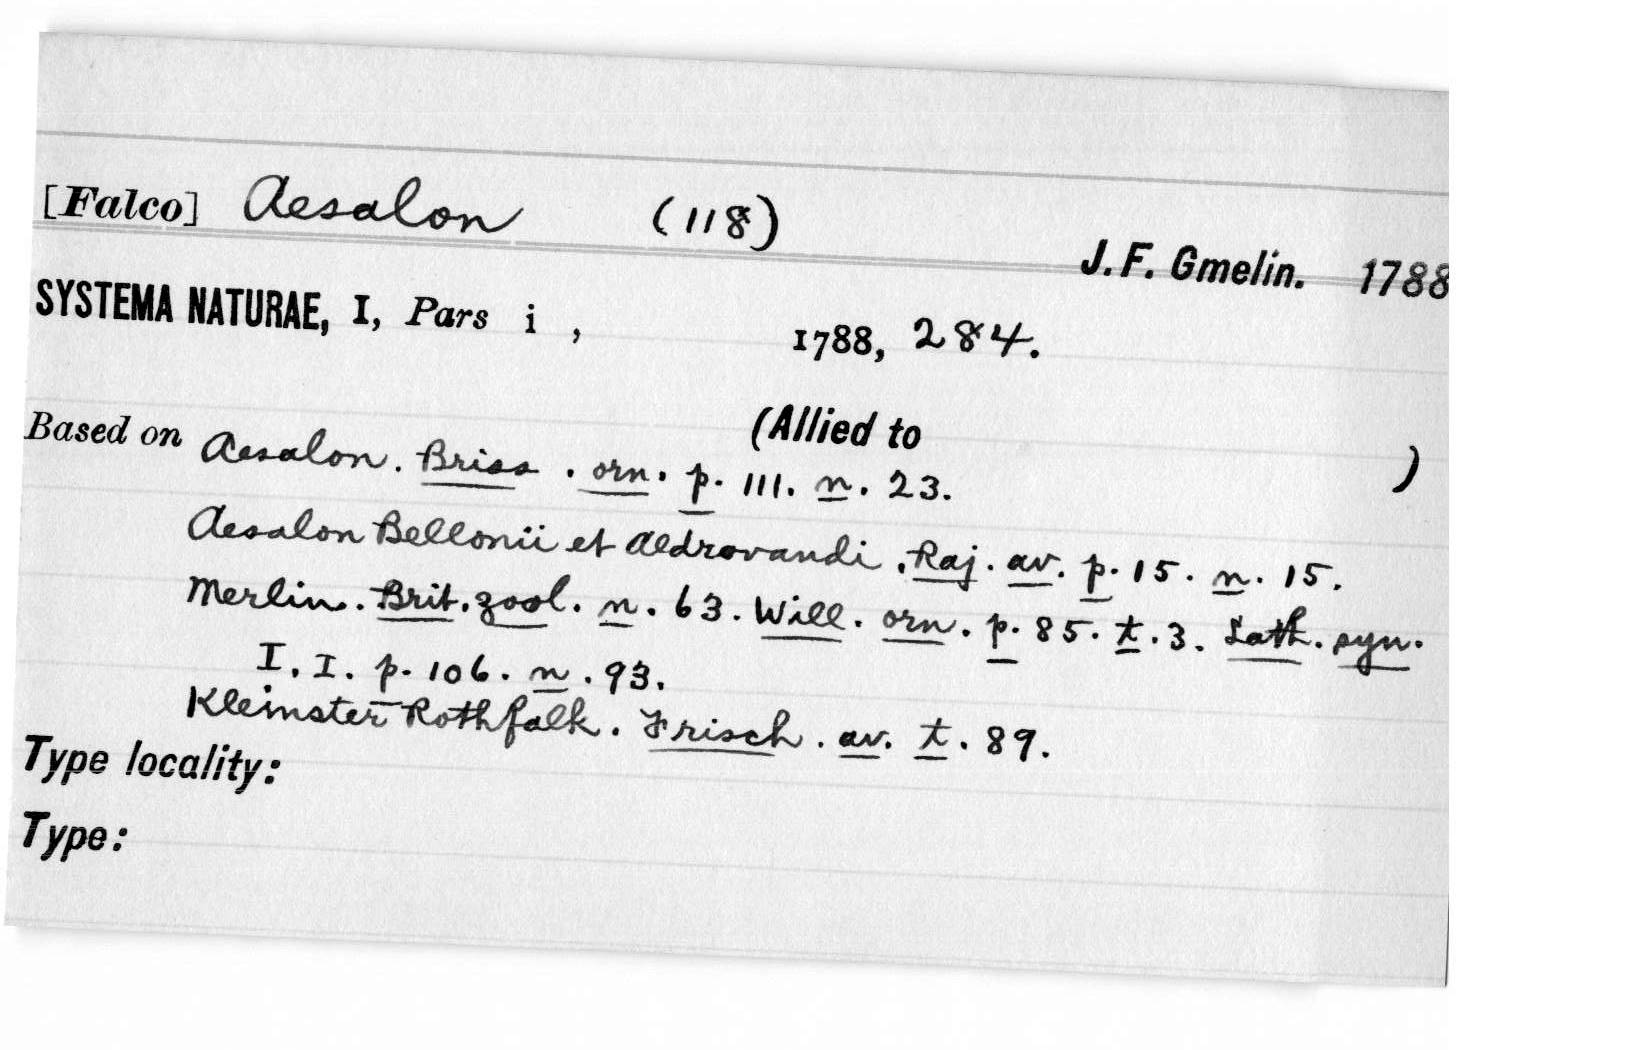 [Falco] Aesalon (118)
J. F. Gmelin. 1788
SYSTEMA NATURAE, I, Pars i , 1788, 284.
(Allied to )
Based on Aesalon. Briss. orn. p. 111. n. 23.
Aesalon Bellonii et Aldrovandi. Raj. av. p. 15. n. 15.
Merlin. Brit. zool. n. 63. Will. orn. p. 85. t. 3. Lath. syn.
I. I. p. 106. n. 93.
Kleinster Rothfalk. Frisch. av. t. 89.
Type locality:
Type: